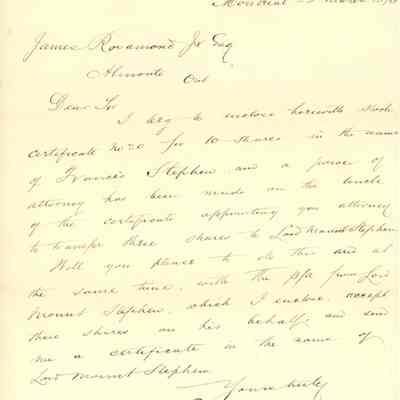 Montreal March
James Rosamond Jr Esq
Almonte Ont
Dear Sir
I beg to enclose herewith Stock
certificate No 20 for 10 shares in the name
of Francis Stephen and a power of
attorney has been made on the back
of the certificate appointing you attorney
to transfer these shares to Lord Mount Stephen
Will you please to do this and at
the same time, with the P/A from Lord
Mount Stephen, which I enclose, accept
these shares on his behalf, and send
me a certificate in the name of
Lord Mount Stephen
Yours truly